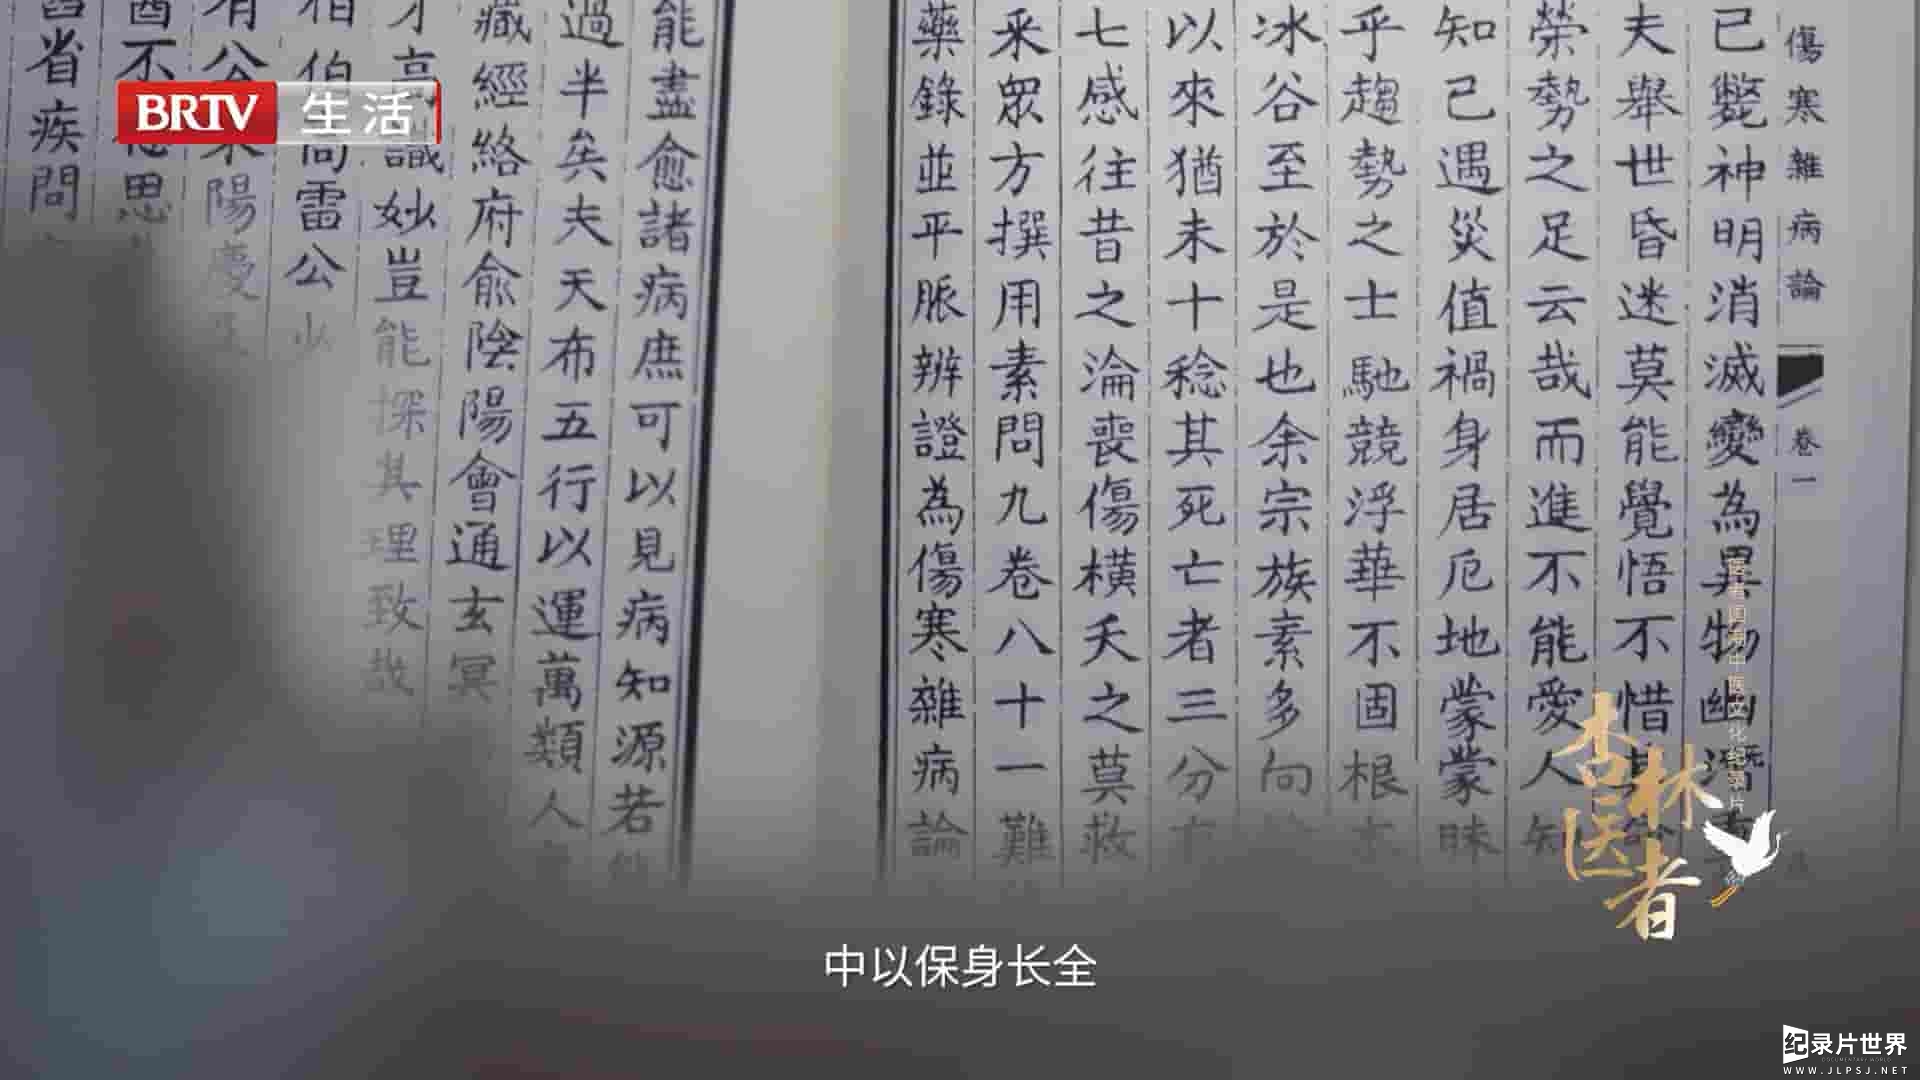 BRTV 生活
傷寒雜病論 卷一
已斃神明消滅變為異物幽潛
夫舉世昏迷莫能覺悟不惜其
榮勢之足云哉而進不能愛人知
知己遇災值禍身居厄地蒙蒙昧
乎趨勢之士馳競浮華不固根本
冰谷至於是也余宗族素多向
以來猶未十稔其死亡者三分
七感往昔之淪喪傷橫夭之莫救
采眾方撰用素問九卷八十一難
藥錄並平脈辨證為傷寒雜病論
能盡愈諸病庶可以見病知源若
過半矣夫天布五行以運萬類人
藏經絡府俞陰陽會通玄冥
才高識妙豈能探其理致哉
伯高雷公少
有公 陽慶
不 思
省疾問
医者圈 中医文化纪录片
杏林医者
中以保身长全
纪录片世界
WWW.JLPSJ.NET